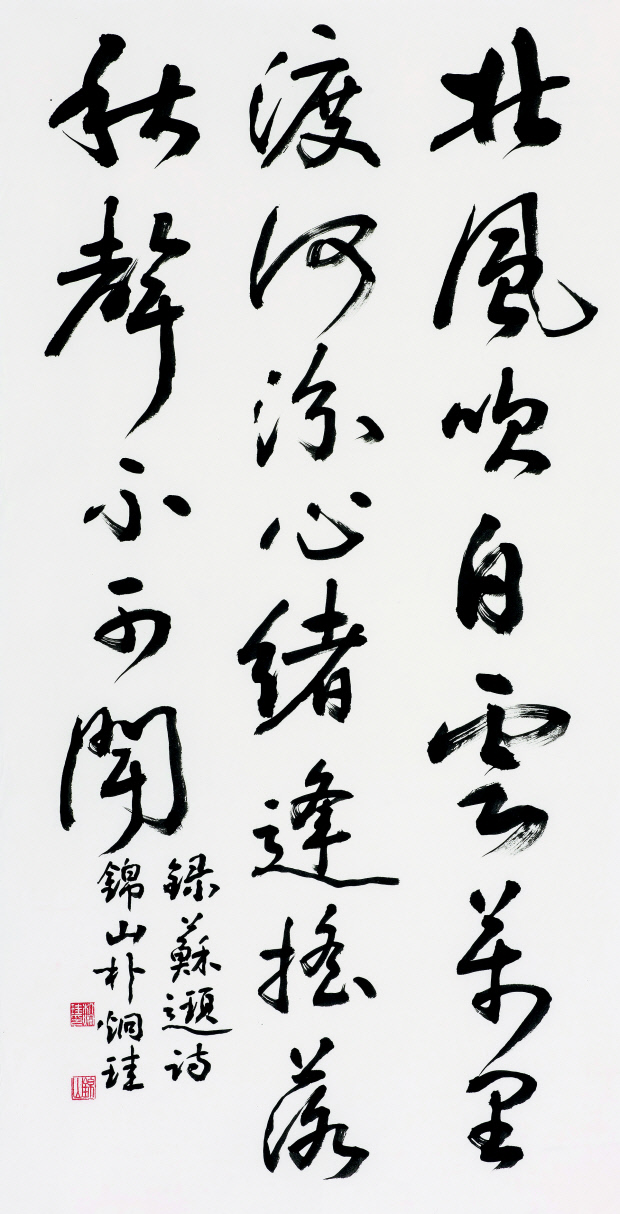 北風吹白雲萬里
渡河汾心緒逢搖落
秋聲不可聞
録蘇頲詩
錦山朴銅珪